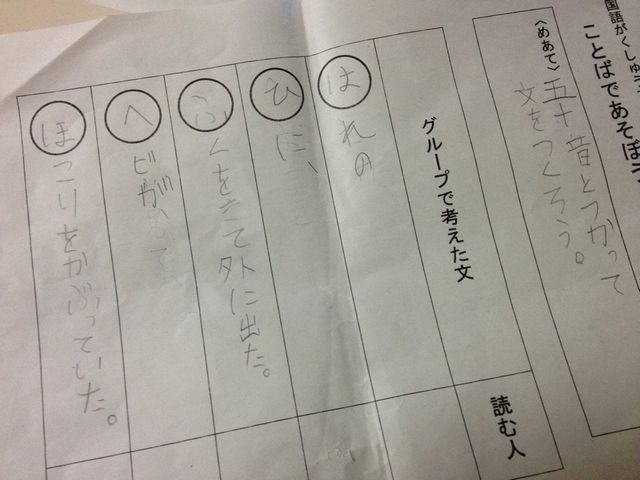 国語がくしゅう
ことばであそぼう
〈めあて〉五十音をつかって
文をつくろう。
グループで考えた文
読む人
はれの
ひに、
ふくをきて外に出た。
ヘビが
ほこりをかぶっていた。